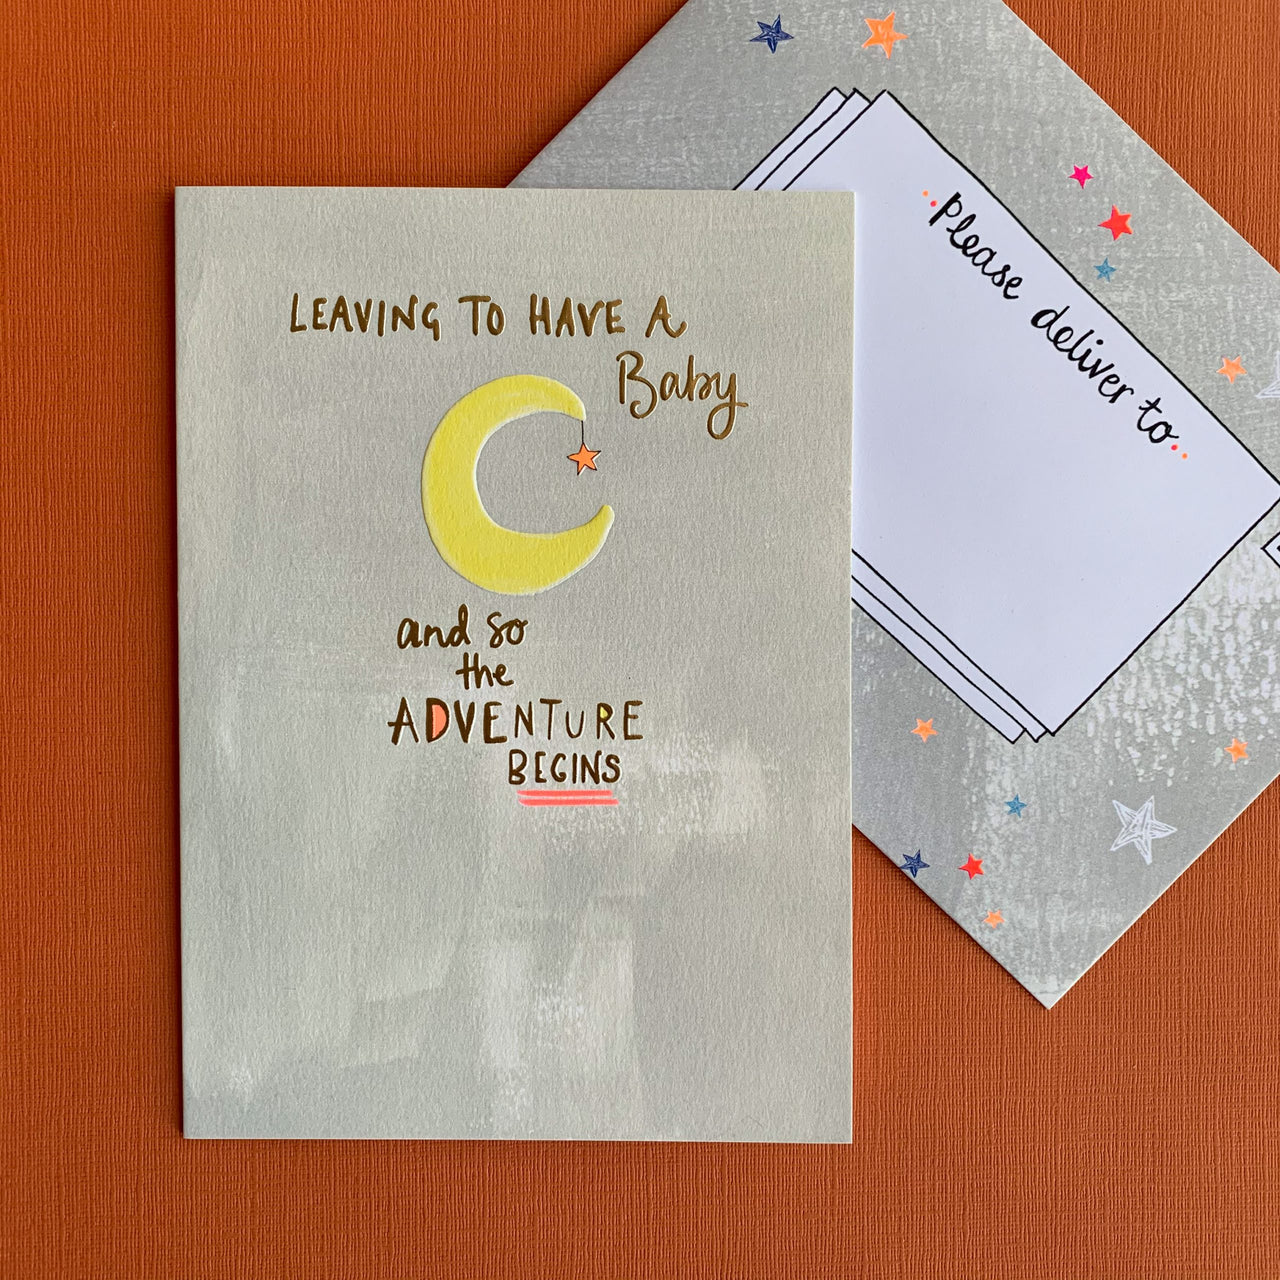 LEAVING TO HAVE A
Baby
and so
the
ADVENTURE
BEGINS
..please deliver to..